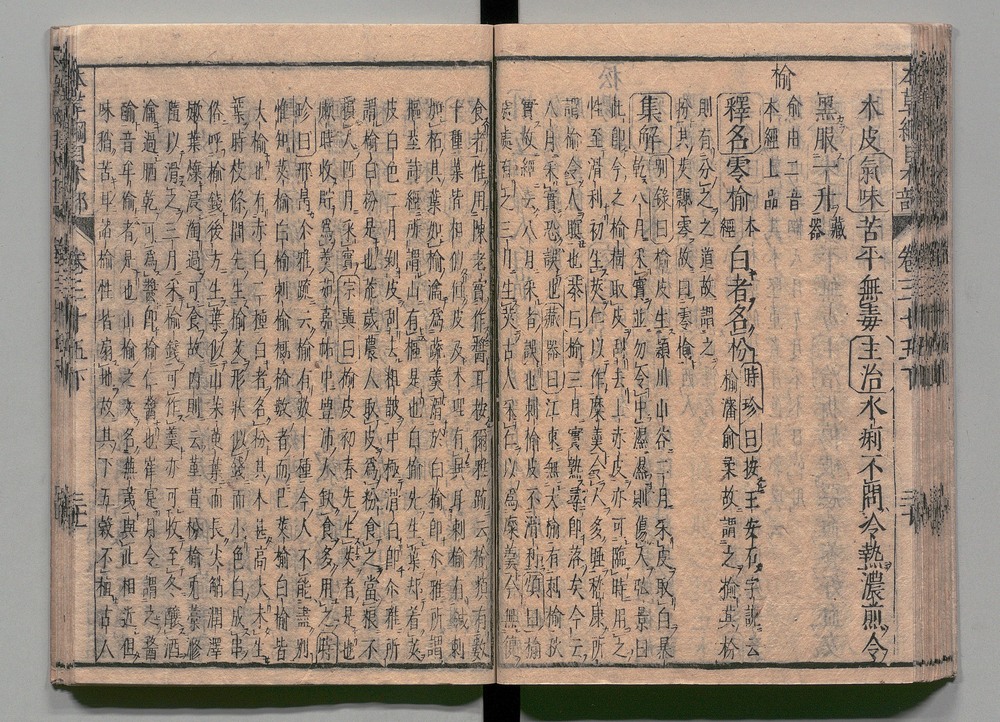 木皮氣味苦平無毒主治水痢不問冷熱濃煎令
黑服一升藏器
榆
俞由二音
本經上品
釋名零榆本經白者名枌時珍曰按王安石字說云榆瀋俞柔故謂之榆其枌
則有分之之道故謂之
枌其莢飄零故曰零榆
集解別錄曰榆皮生潁川山谷二月采皮取白暴
乾八月采實並勿令中濕濕則傷人弘景曰
此即今之榆樹取皮刮去上赤皮亦可臨時用之
性至滑利初生莢仁以作糜羹令人多睡嵇康所
謂榆令人瞑也恭曰榆三月實熟尋即落矣今云
八月采實恐誤也藏器曰江東無大榆有刺榆秋
實故經云八月采者誤也刺榆皮不滑利頌曰榆
處處有之三月生莢古人采仁以為糜羹今無復
食者惟用陳老實作醬耳按爾雅疏云榆類有數
十種葉皆相似但皮及木理有異耳刺榆有鍼刺
如柘其葉如榆瀹為蔬羹滑於白榆即爾雅所謂
樞荎詩經所謂山有樞是也白榆先生葉却著莢
皮白色二月剝皮刮去粗皵中極滑白即爾雅所
謂榆白枌是也荒歲農人取皮為粉食之當粮不
損人四月采實宗奭曰榆皮初春先生莢者是也
嫩時收貯為羹茹嘉祐中豐沛人飲食多用之時
珍曰邢昺爾雅疏云榆有數十種今人不能盡別
惟知莢榆白榆刺榆榔榆數者而已莢榆白榆皆
大榆也有赤白二種白者名枌其木甚高大未生
葉時枝條間先生榆莢形狀似錢而小色白成串
俗呼榆錢後方生葉似山茱萸葉而長尖䩄潤澤
嫩葉煠浸淘過可食故內則云菫荁枌榆免薧滫
瀡以滑之三月采榆錢可作羹亦可收至冬釀酒
瀹過晒乾可為醬即榆仁醬也崔寔月令謂之䜳
䤅音牟偷者是也山榆之莢名蕪荑與此相近但
味稍苦耳諸榆性皆扇地故其下五穀不植古人